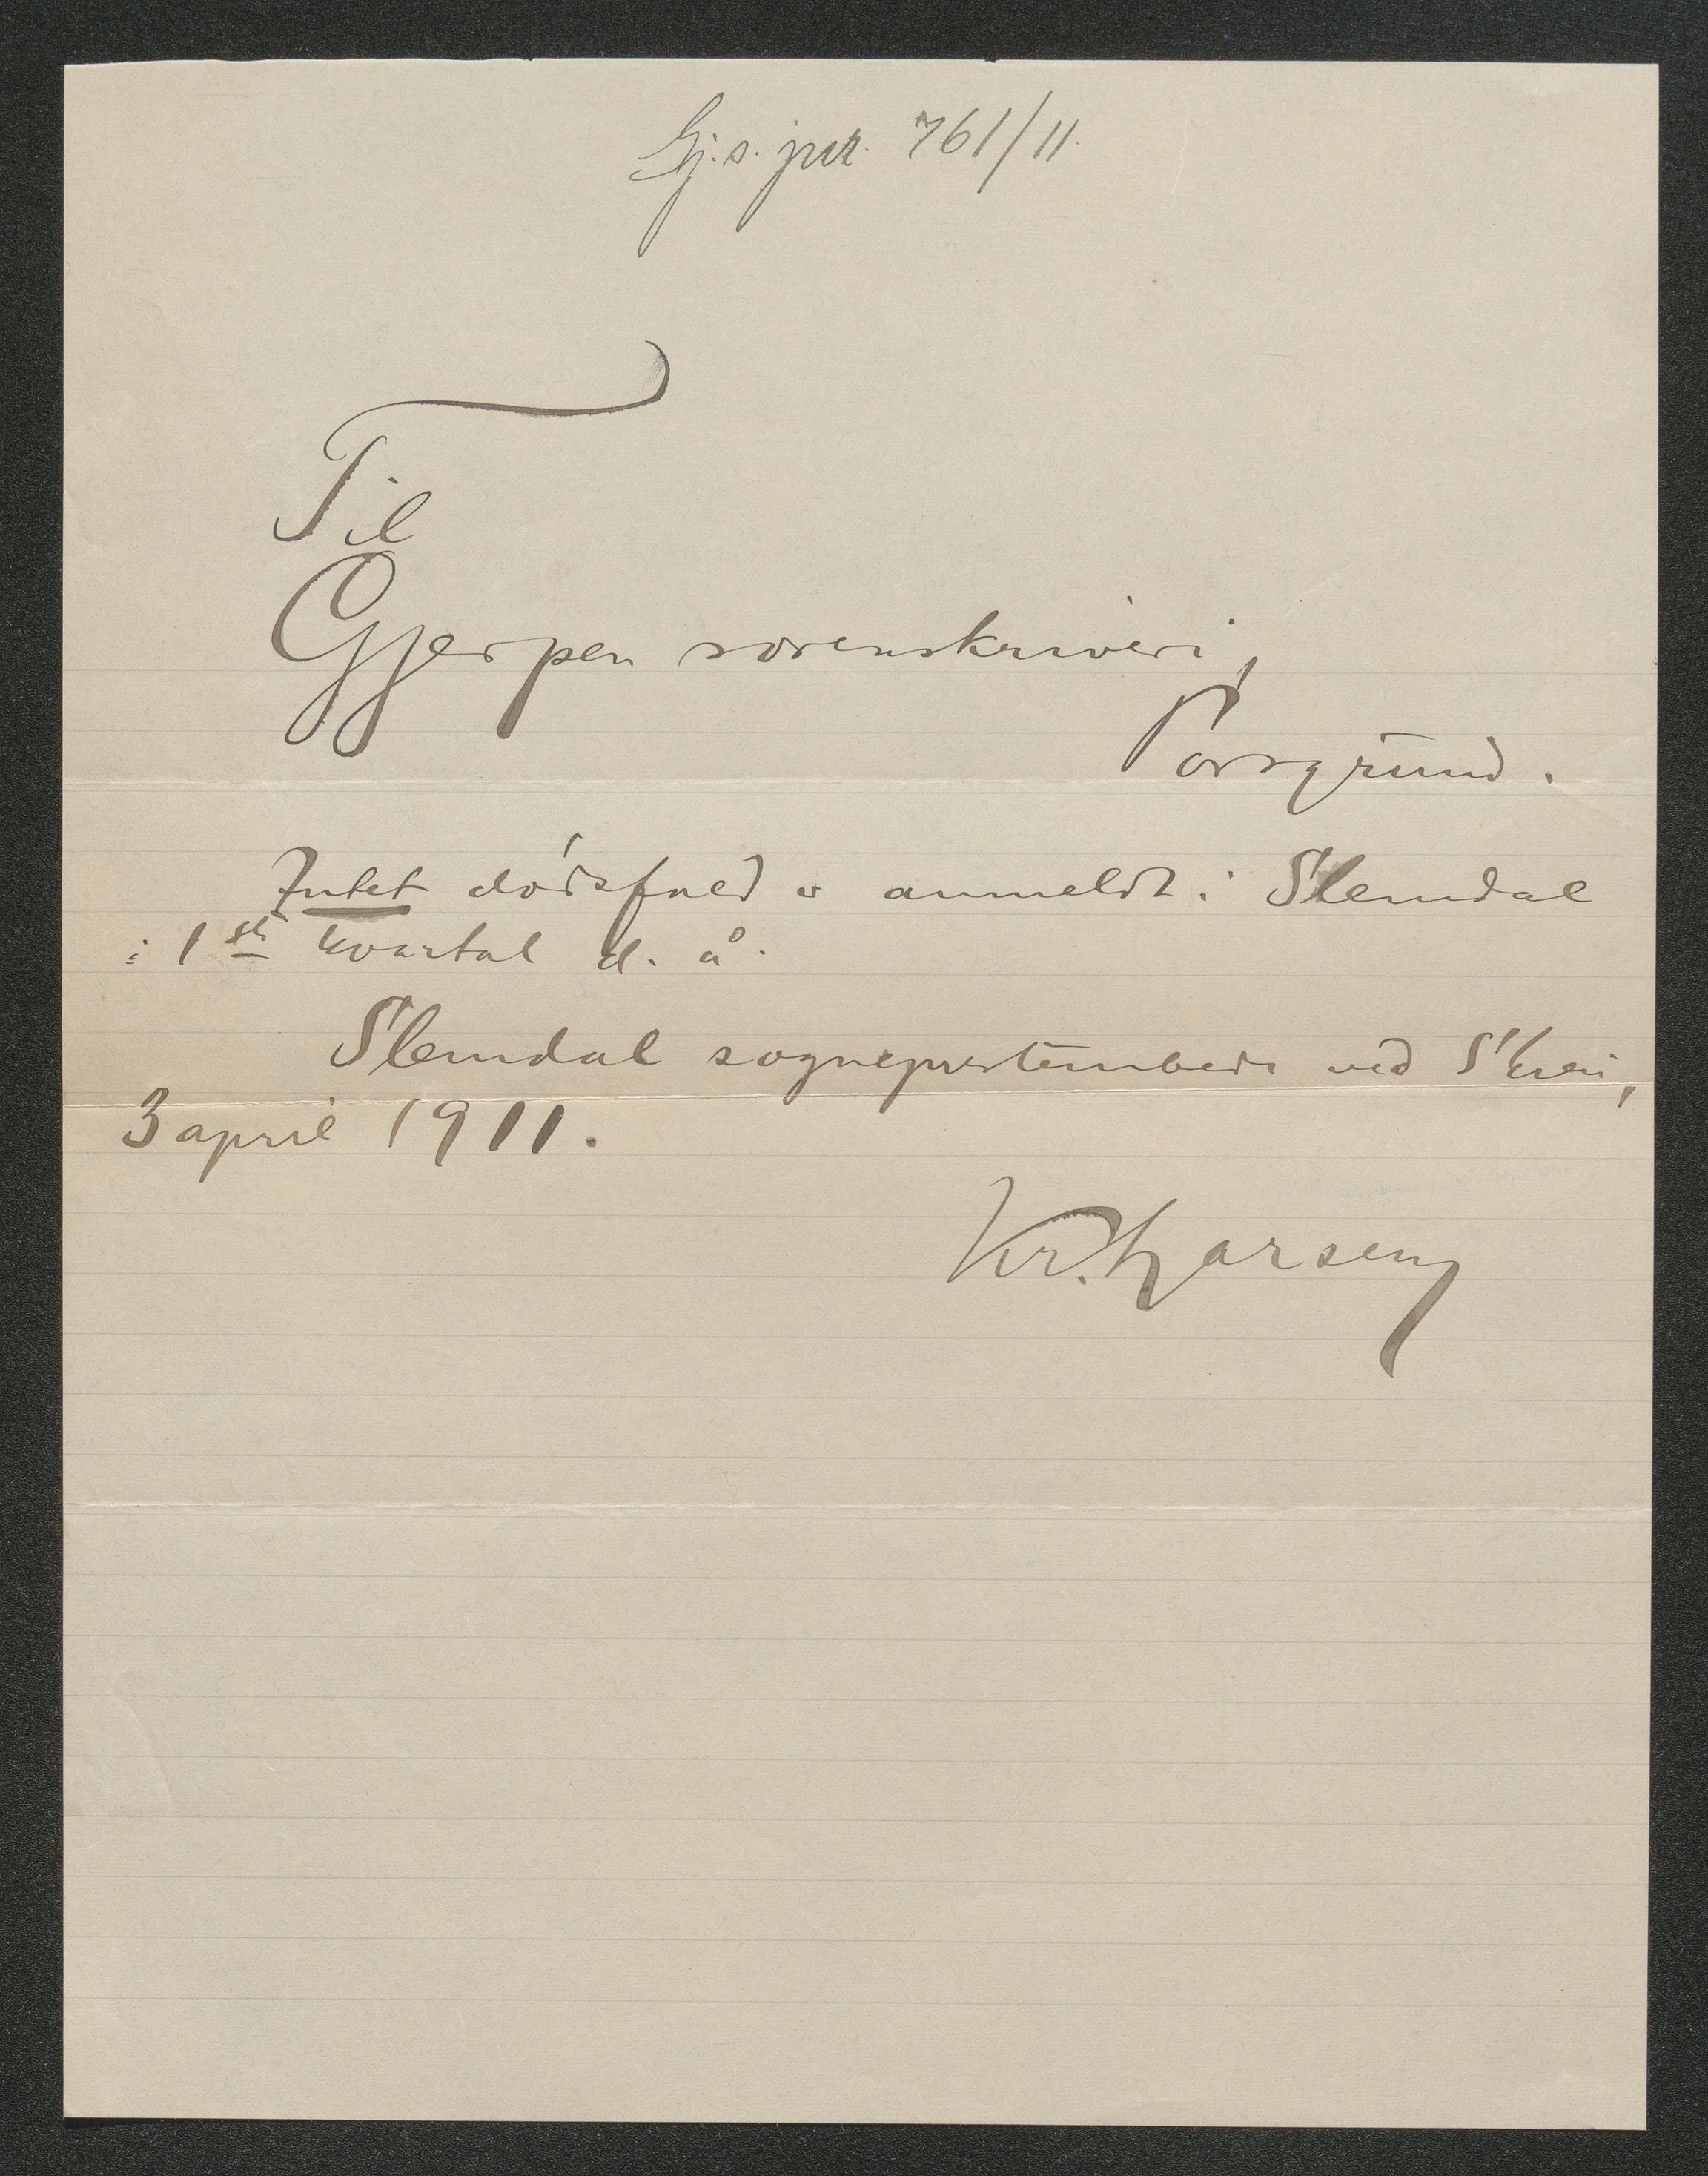 Gj.s. jnr. 761/11.
Til
Gjerpen sorenskriveri,
Porsgrund.
Intet dødsfald er anmeldt i Slemdal
i 1ste kvartal d. å.
Slemdal sogneprestembede ved Skien,
3 april 1911.
Kr. Larsen